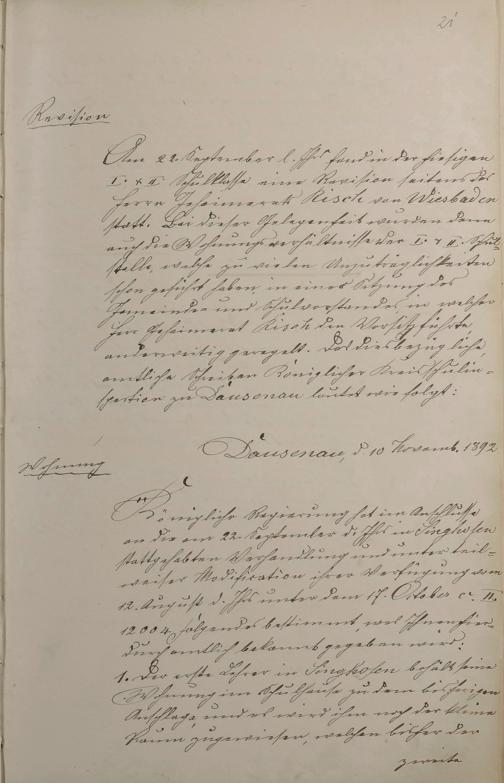 21
Revision
Am 22. September l. Jhs fand in der hiesigen
I. & II. Schulklasse eine Revision seitens des
Herrn Geheimerat Risch von Wiesbaden
statt. Bei dieser Gelegenheit wurden denn
auch die Wohnungsverhältnisse der I. & II. Schul-
stelle, welche zu vielen Unzuträglichkeiten
schon geführt haben in einer Sitzung des
Gemeinde- und Schulvorstandes in welcher
Herr Geheimerat Risch den Vorsitz führte
anderweitig geregelt. Das diesbezügliche
amtliche Schreiben Königlicher Kreisschulin-
spection zu Dausenau lautet wie folgt:
Dausenau, d 10 Novemb. 1892
Wohnung
Königliche Regierung hat im Anschlusse
an die am 22. September d. Jhs in Singhofen
stattgehabten Verhandlung und unter teil-
weiser Modification ihrer Verfügung vom
12. August d. Jhs unter dem 17. October cr. II.
12004 folgendes bestimmt, was Ihnen hier-
durch amtlich bekannt gegeben wird:
1. Der erste Lehrer in Singhofen behält seine
Wohnung im Schulhause zu dem bisherigen
Anschlage, und es wird ihm noch der kleine
Raum zugewiesen, welchen bisher der
zweite